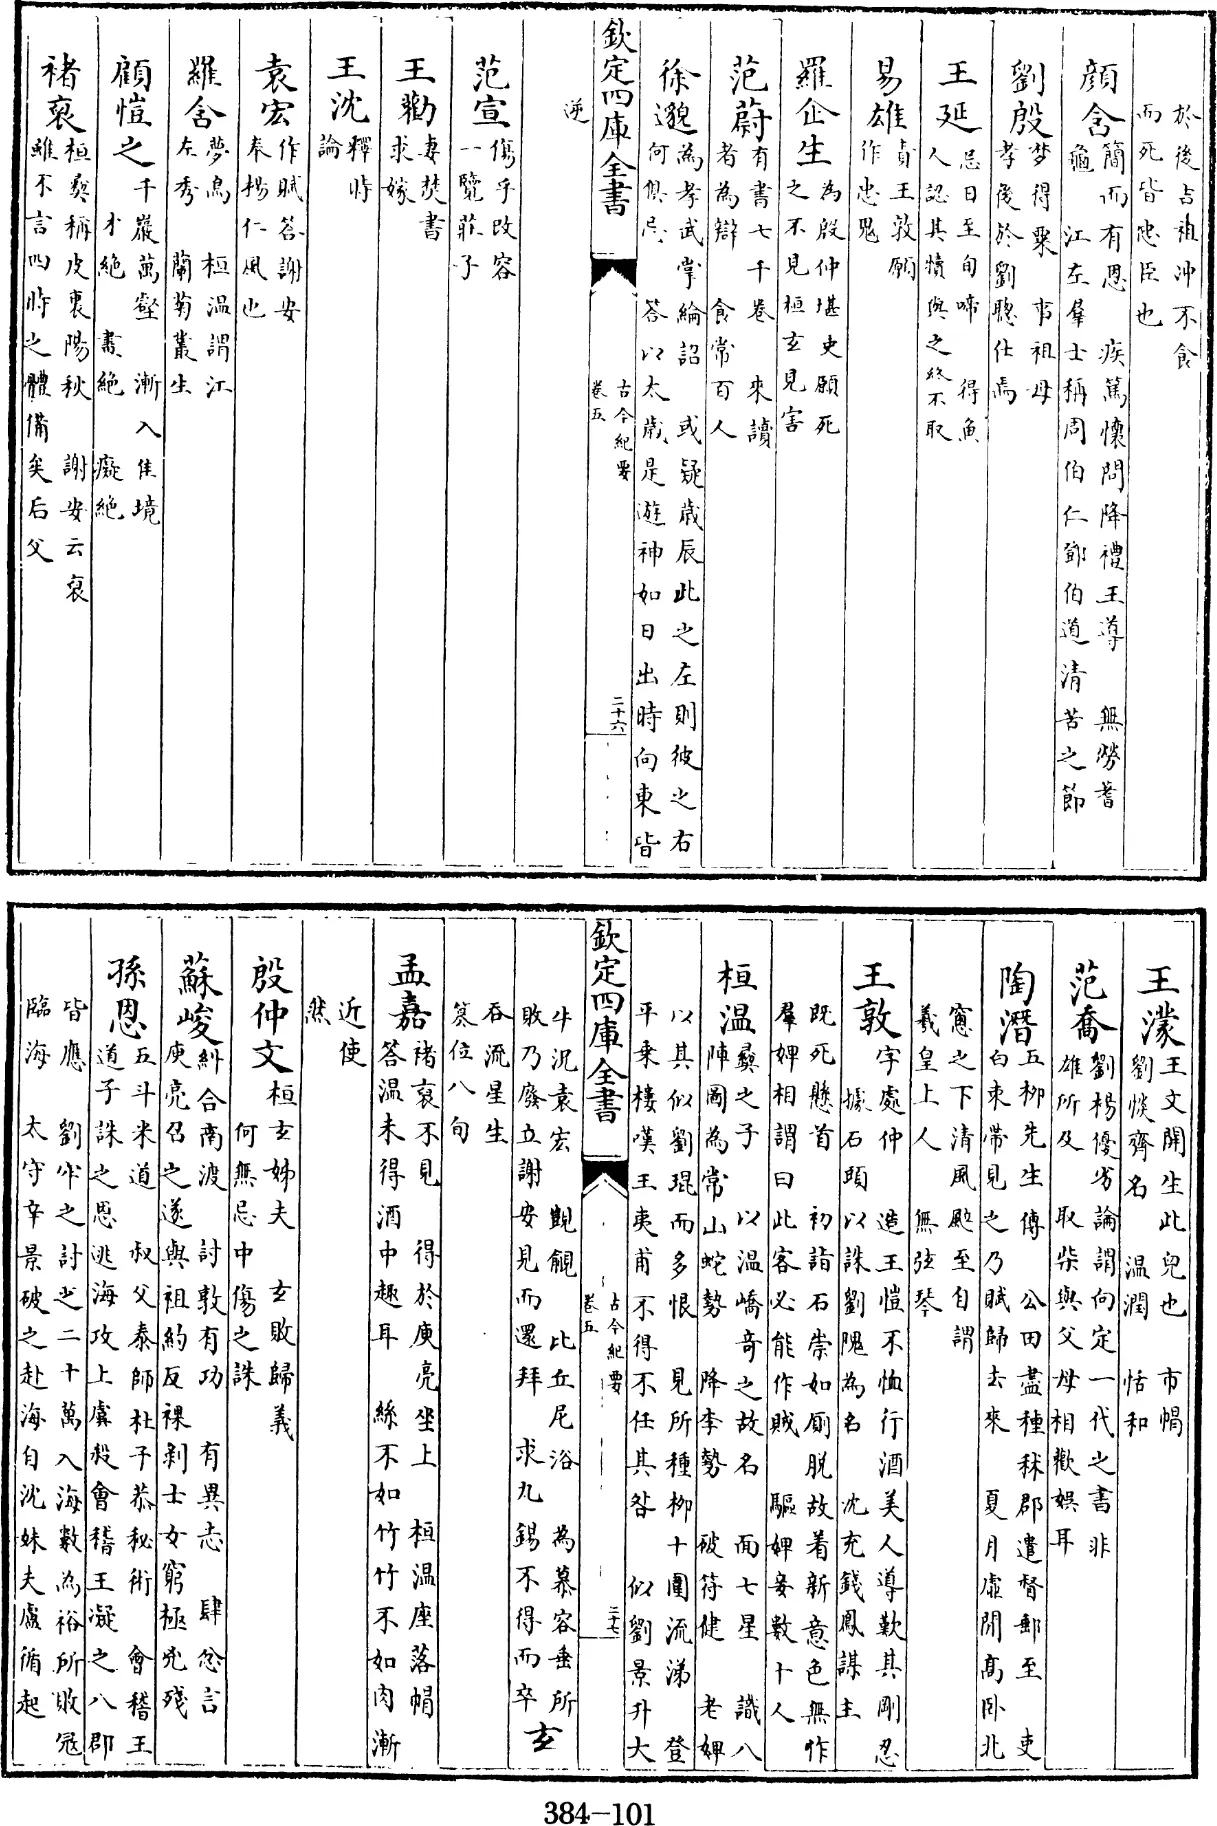 於後占祖沖不食
而死皆忠臣也
顔含簡而有恩 疾篤懷問降禮王導 無勞蓍
龜 江左羣士稱周伯仁鄧伯道清苦之節
劉殷夢得粟 事祖母
孝後於劉聰仕焉
王延忌日至旬啼 得魚
人認其犢與之終不取
易雄責王敦願
作忠鬼
羅企生為殷仲堪吏願死
之不見桓玄見害
范蔚有書七千卷 來讀
者為辦食常百人
徐邈為孝武掌綸詔 或疑歲辰此之左則彼之右
何俱忌 答以太歲是遊神如日出時向東皆
欽定四庫全書
古今紀要
卷五
二十六
逆
范宣傷手改容
一覽莊子
王歡妻焚書
求嫁
王沈釋時
論
袁宏作賦答謝安
奉揚仁風也
羅含夢鳥 桓溫謂江
左秀 蘭菊叢生
顧愷之千巖萬壑 漸入佳境
才絶 畫絶 癡絶
褚裒桓彜稱皮裏陽秋 謝安云裒
雖不言四時之體備矣后父
王濛王文開生此兒也 市帽
劉惔齊名 溫潤 恬和
范喬劉楊優劣論謂向定一代之書非
雄所及 取柴與父母相歡娯耳
陶潛五柳先生傳 公田盡種秫郡遣督郵至 吏
白束帶見之乃賦歸去來 夏月虛閒高卧北
窻之下清風颭至自謂
羲皇上人 無弦琴
王敦字處仲 造王愷不恤行酒美人導歎其剛忍
據石頭以誅劉隗為名 沈充錢鳳謀主
既死懸首 初詣石崇如厠脱故着新意色無怍
羣婢相謂曰此客必能作賊 驅婢妾數十人
桓溫彜之子 以溫嶠奇之故名 面七星 識八
陣圖為常山蛇勢 降李勢 破苻健 老婢
以其似劉琨而多恨 見所種柳十圍流涕 登
平乗樓嘆王夷甫不得不任其咎 似劉景升大
欽定四庫全書
古今紀要
卷五
二十七
牛況袁宏 覬覦 比丘尼浴 為慕容垂所
敗乃廢立謝安見而還拜 求九錫不得而卒玄
吞流星生
簒位八旬
孟嘉褚裒不見 得於庾亮坐上 桓溫座落帽
答温未得酒中趣耳 絲不如竹竹不如肉漸
近使
然
殷仲文桓玄姊夫 玄敗歸義
何無忌中傷之誅
蘇峻糾合南渡 討敦有功 有異志 肆忿言
庾亮召之遂與祖約反裸剥士女窮極兇殘
孫恩五斗米道 叔父泰師杜子恭秘術 會稽王
道子誅之恩逃海攻上虞殺會稽王凝之八郡
皆應 劉牢之討之二十萬入海數為裕所敗冦
臨海 太守辛景破之赴海自沈妹夫盧循起
384-101